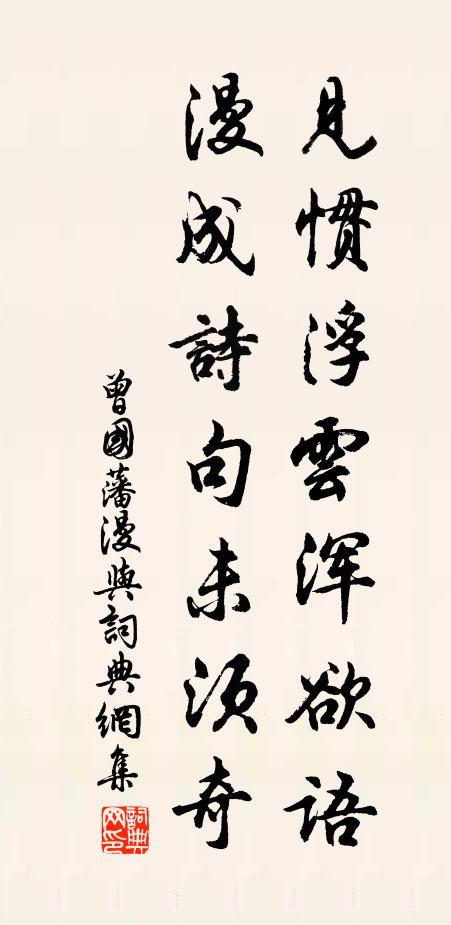 見慣浮雲渾欲語
漫成詩句未須奇
曾國藩漫與詞典網集
詞典網印